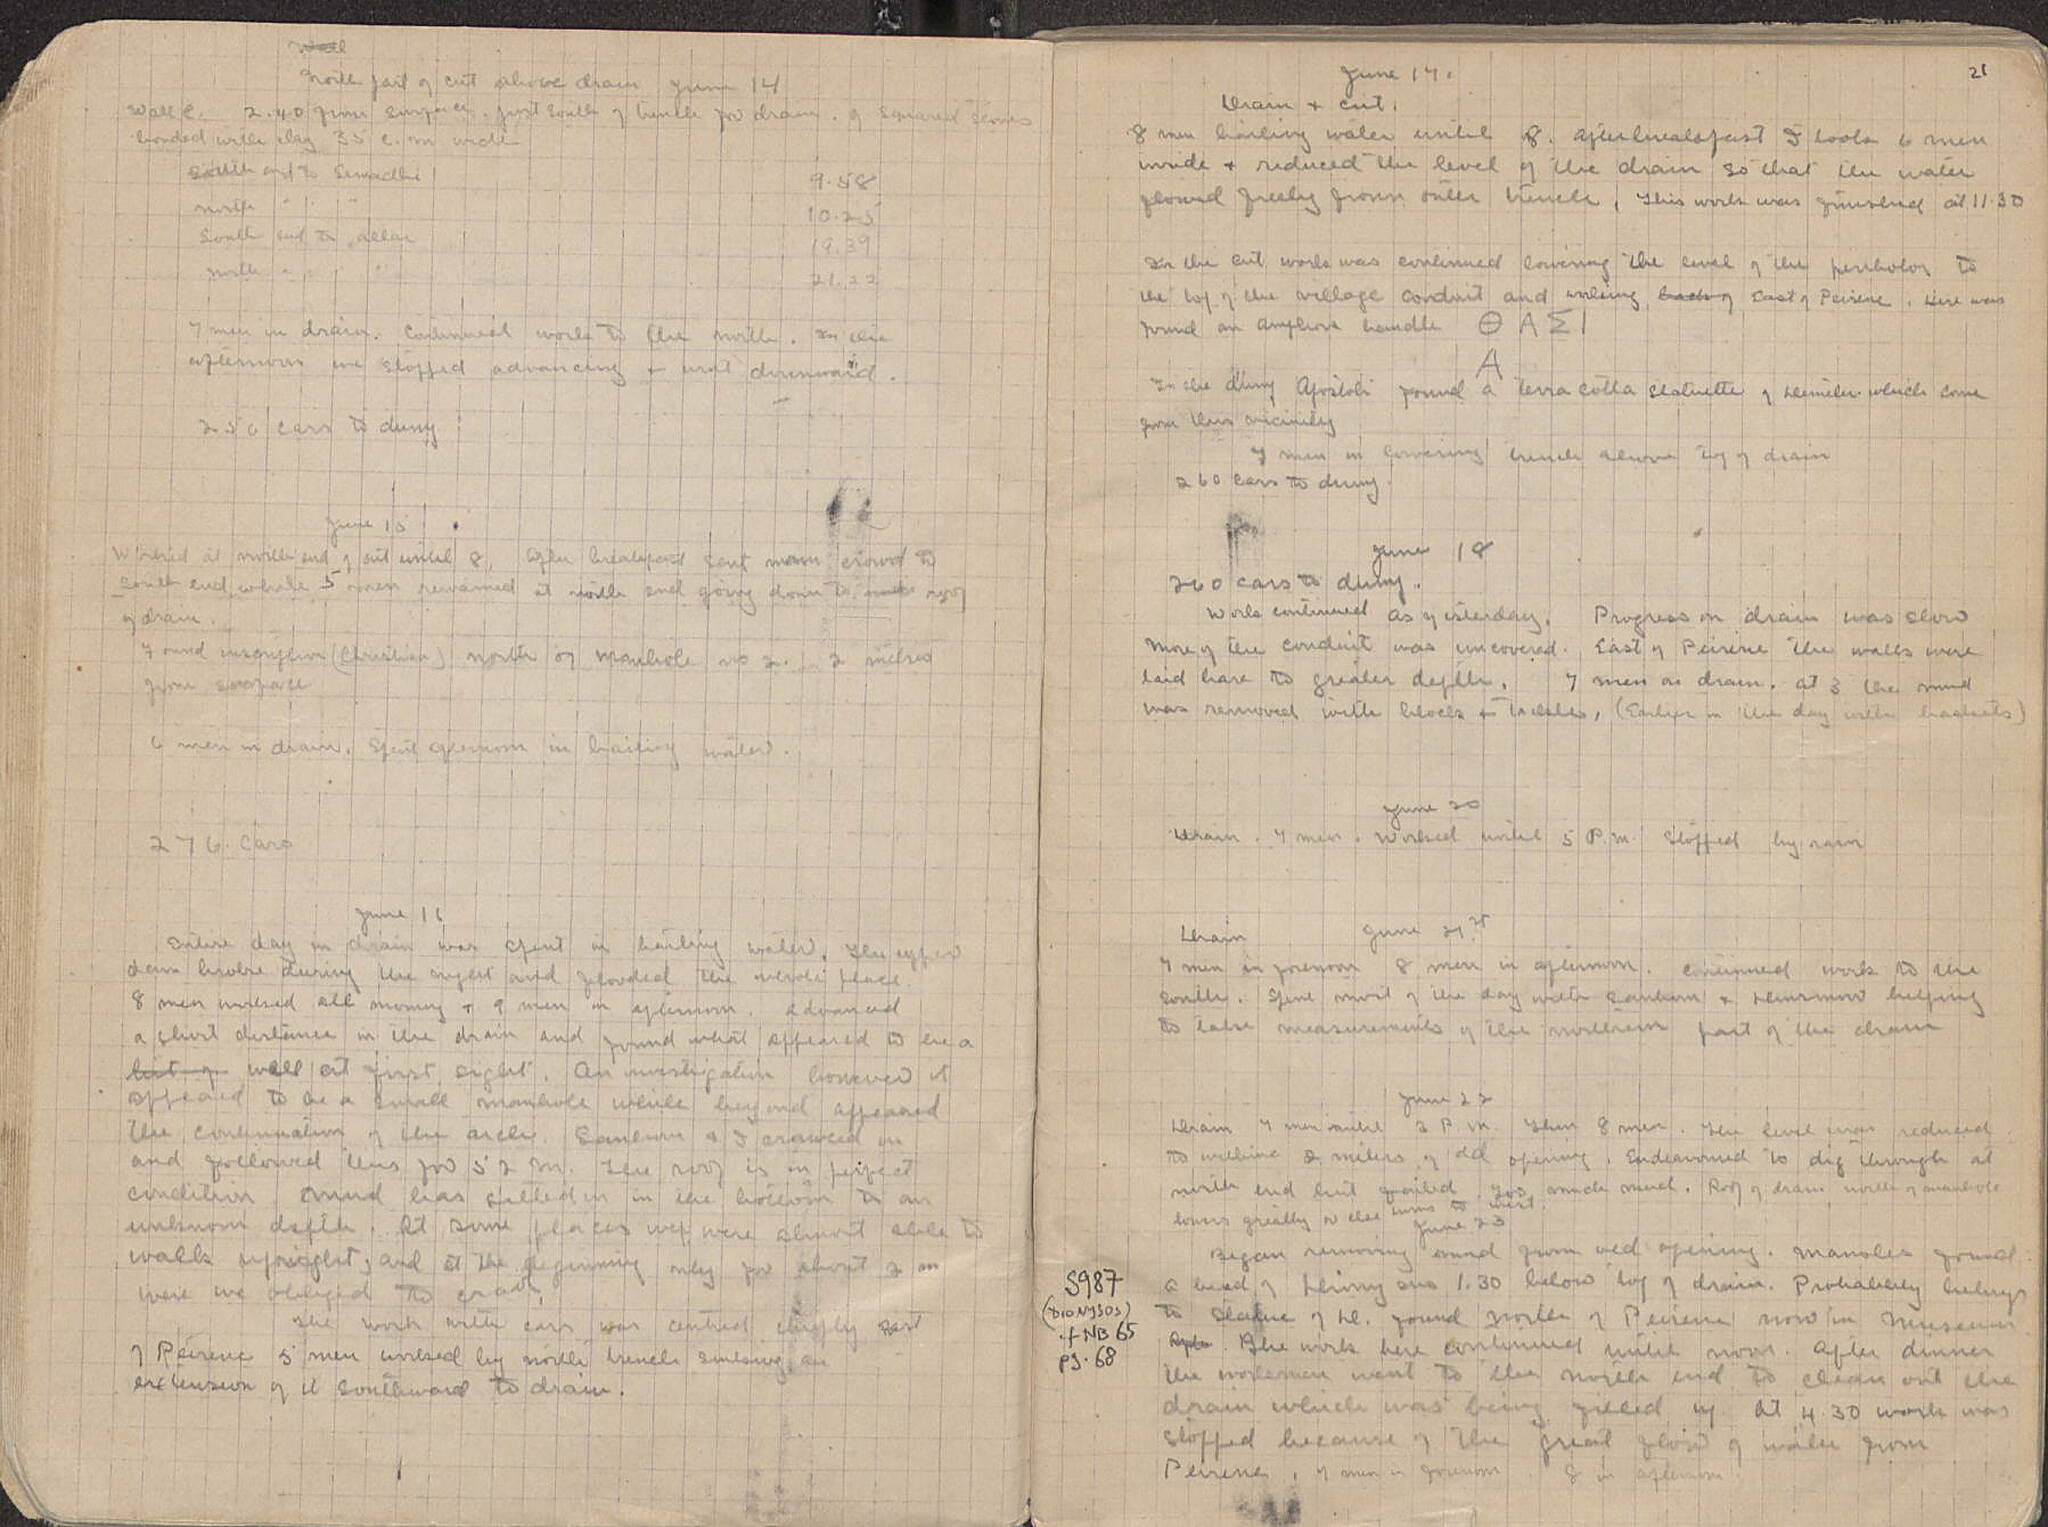 North part of cut above drain June 14
Wall C. 2.40 from surface. Just South of trench for drain. of squared stones
bonded with clay 35 c.m wide
South end to Semadhe
9.58
north " " "
10.25
South end to altar
19.39
north " " "
21.22
7 men in drain. Continued work to the north. In the
afternoon we stopped advancing + went downward.
250 cars to dump
June 15
Worked at north end of cut until 8. After breakfast sent main crowd to
South end while 5 men remained at north end going down to roof
of drain.
Found inscription (Christian) north of manhole no 2. 2 metres
from surface
6 men in drain. Spent afternoon in bailing water.
276 cars
June 16
Entire day in drain was spent in bailing water. The upper
dam broke during the night and flooded the whole place.
8 men worked all morning + 9 men in afternoon. Advanced
a short distance in the drain and found what appeared to be a
bit of well at first sight. On investigation however it
appeared to be a small manhole while beyond appeared
the continuation of the arch. Sanborn & I crawled in
and followed this for 52 m. The roof is in perfect
condition. Mud has silted in in the bottom to an
unknown depth. At some places we were almost able to
walk upright, and at the beginning only for about 2 m
were we obliged to crawl.
The work with cars was centred chiefly East
of Peirene 5 men worked by north trench sinking an
extension of it southward to drain.
21
June 17.
Drain + cut.
8 men bailing water until 8. After breakfast I took 6 men
inside + reduced the level of the drain so that the water
flowed freely from outer trench. This work was finished at 11.30
In the cut work was continued lowering the level of the peribolos to
the top of the village conduit and working back of East of Peirene. Here was
found an amphora handle ΘΑΣΙ
Α
In the dump Apostoli found a terra cotta statuette of Demeter which came
from this vicinity
7 men in lowering trench above top of drain
260 cars to dump.
June 18
260 cars to dump.
Work continued as yesterday. Progress on drain was slow
More of the conduit was uncovered. East of Peirene the walls were
laid bare to greater depth. 7 men on drain. At 3 the mud
was removed with block + tackle, (Earlier in the day with baskets)
June 20
Drain. 7 men. Worked until 5 P.M. Stopped by rain
Drain June 21st
7 men in forenoon 8 men in afternoon. Continued work to the
South. Spent most of the day with Sanborn & Dinsmoor helping
to take measurements of the northern part of the drain
June 22
Drain 7 men until 3 P.M. then 8 men. The level was reduced
to within 2 meters of old opening. Endeavored to dig through at
north end but failed. Too much mud. Roof of drain north of manhole
lowers greatly or else turns to west.
June 23
Began removing mud from old opening. Manoles found
a head of Dionysus 1.30 below top of drain. Probably belongs
to statue of D. found north of Peirene now in Museum
The work here continued until noon. After dinner
the workmen went to the north end to clean out the
drain which was being filled up. At 4.30 work was
stopped because of the great flow of water from
Peirene. 7 men in forenoon. 8 in afternoon.
S987
(DIONYSOS)
cf NB 65
pg. 68